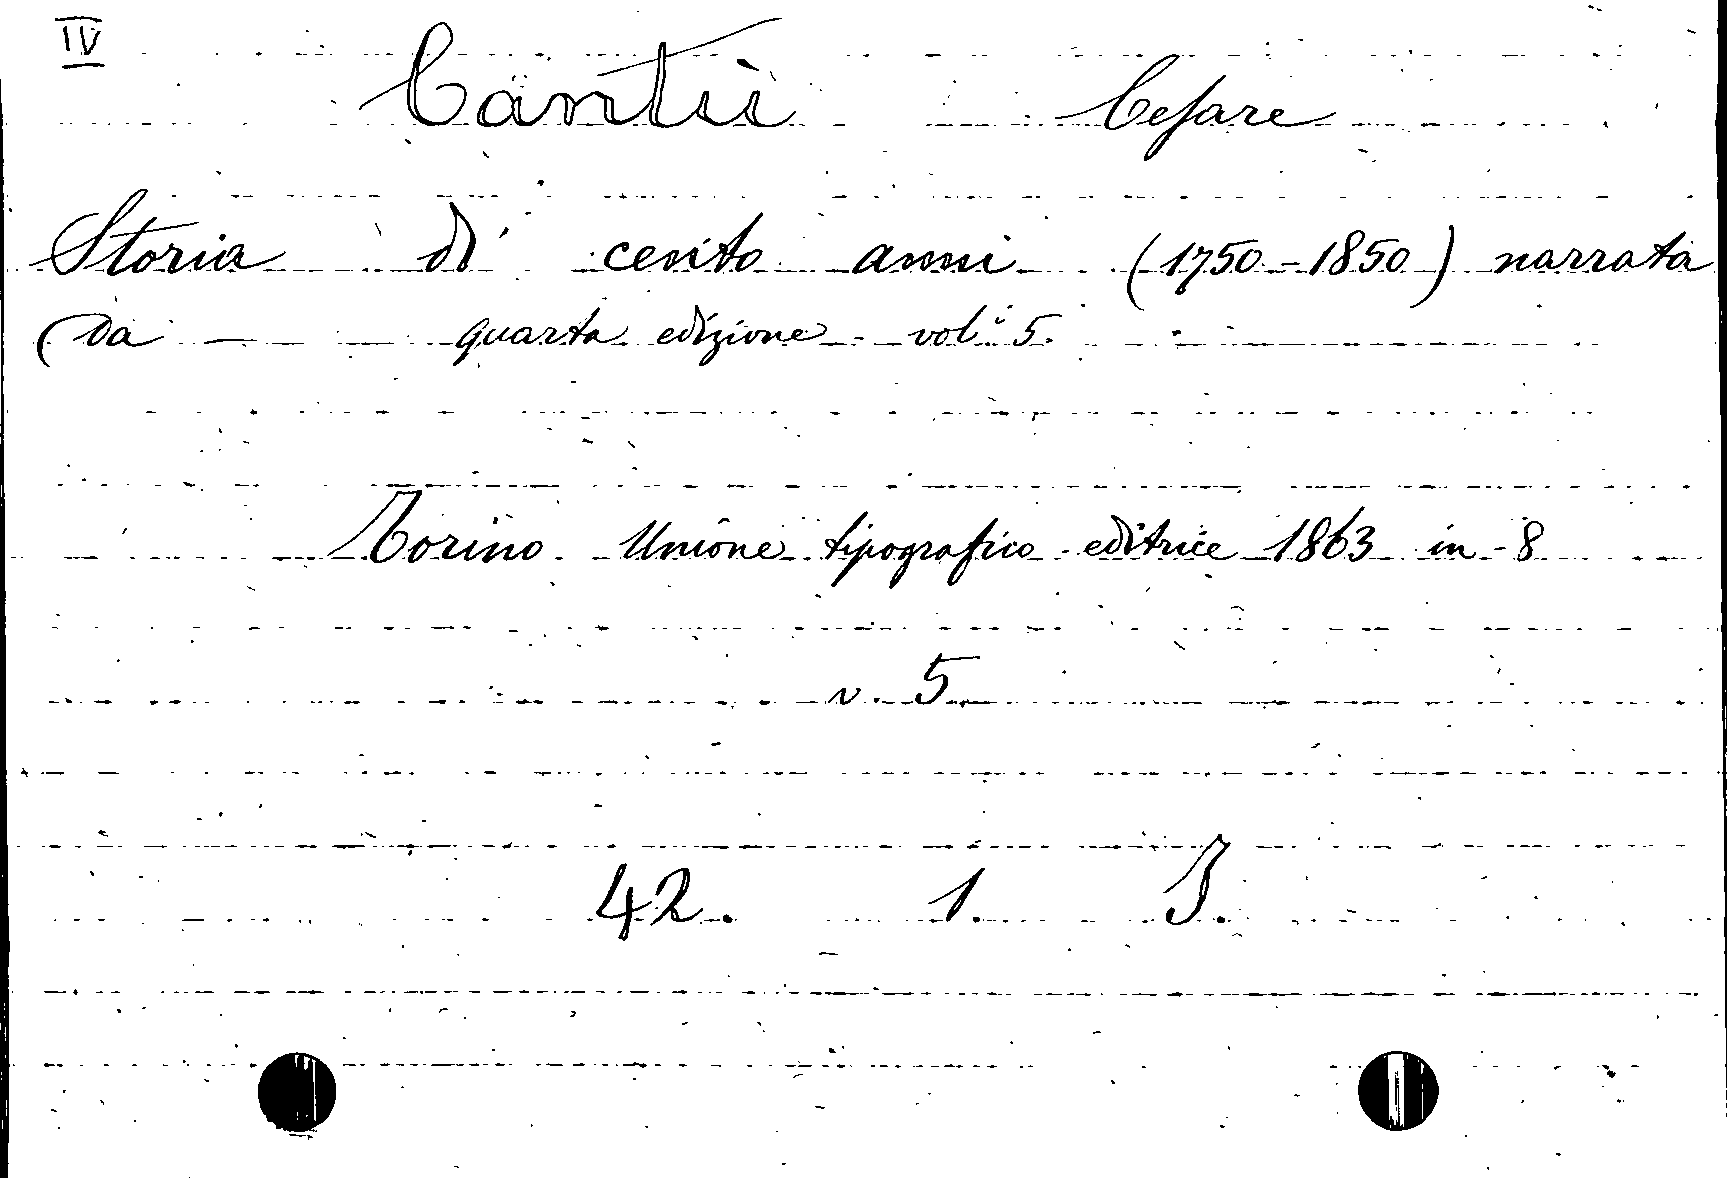 IV
Cantù Cesare
Storia di cento anni (1750-1850) narrata
(da — quarta edizione vol. 5.
Torino Unione tipografico editrice 1863 in-8
v. 5
42. 1. 3.